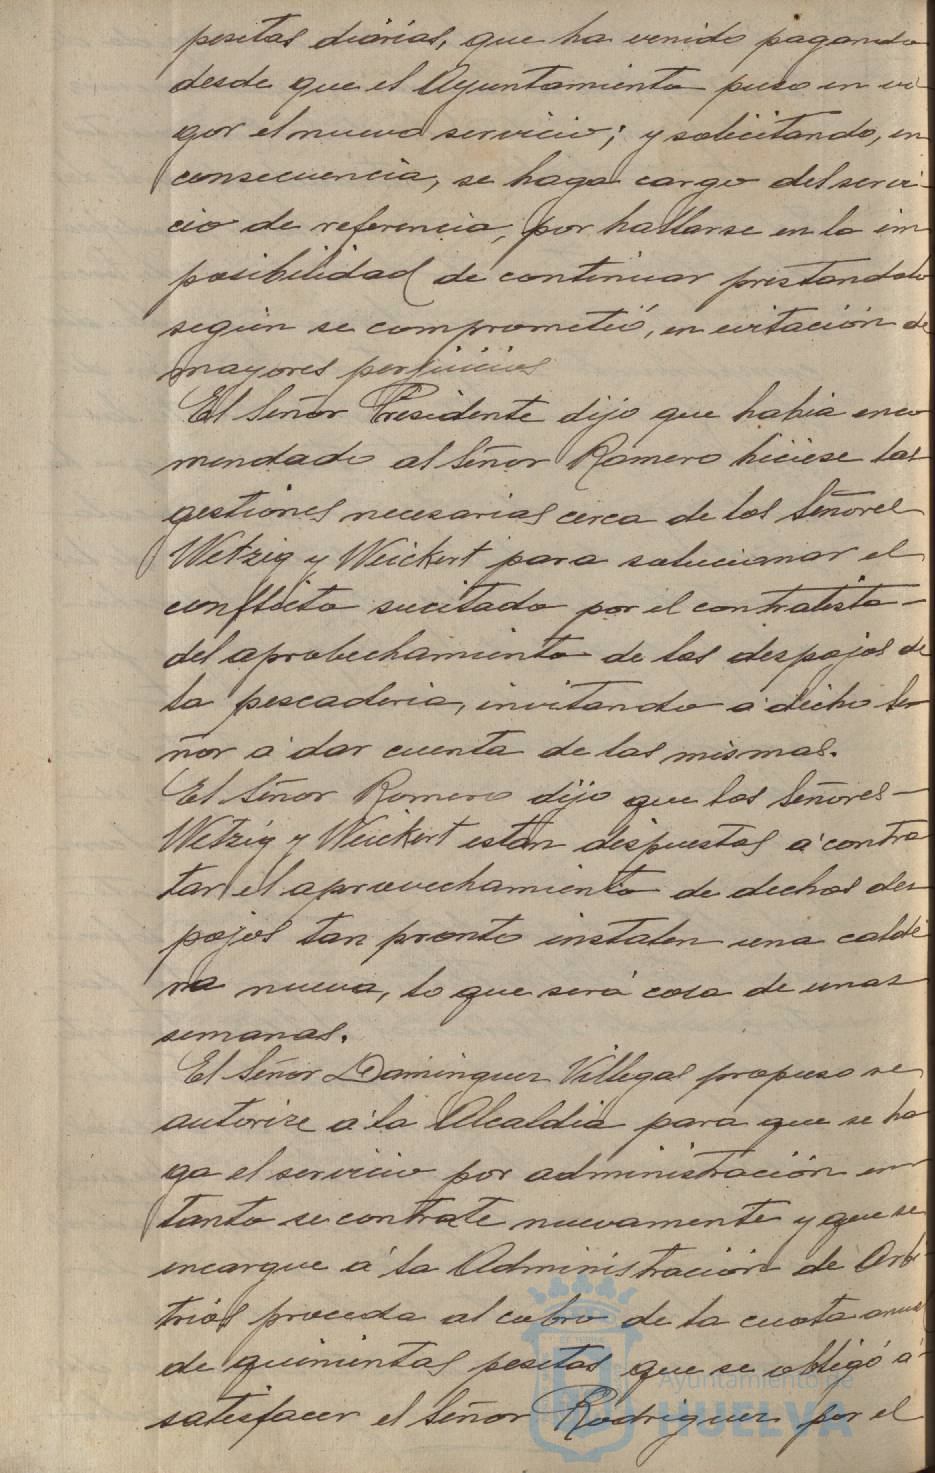 pesetas diarias, que ha venido pagando
desde que el Ayuntamiento puso en vi-
gor el nuevo servicio; y solicitando, en
consecuencia, se haga cargo del servi-
cio de referencia, por hallarse en la im
posibilidad de continuar prestandolo
según se comprometió, en evitación de
mayores perjuicios
El Señor Presidente dijo que habia enco
mendado al Señor Romero hiciese las
gestiones necesarias cerca de los Señores
Wetzig y Weickert para solucionar el
conflicto sucitado por el contratista-
del aprobechamiento de los despojos de
la pescaderia, invitando a dicho Se
ñor a dar cuenta de las mismas.
El Señor Romero dijo que los Señores-
Wetzig y Weickert están dispuestos a contra
tar el aprovechamiento de dechos des
pojos tan pronto instalen una calde
ra nueva, lo que será cosa de unas
semanas.
El Señor Dominguez Villegas propuso se
autorize a la Alcaldia para que se ha
ga el servicio por administración en
tanto se contrate nuevamente y que se
encargue á la Administración de Arbi
trios proceda al cobro de la cuota anual
de quinientas pesetas que se obligó á-
satisfacer el Señor Rodriguez por el
Ayuntamiento de
HUELVA